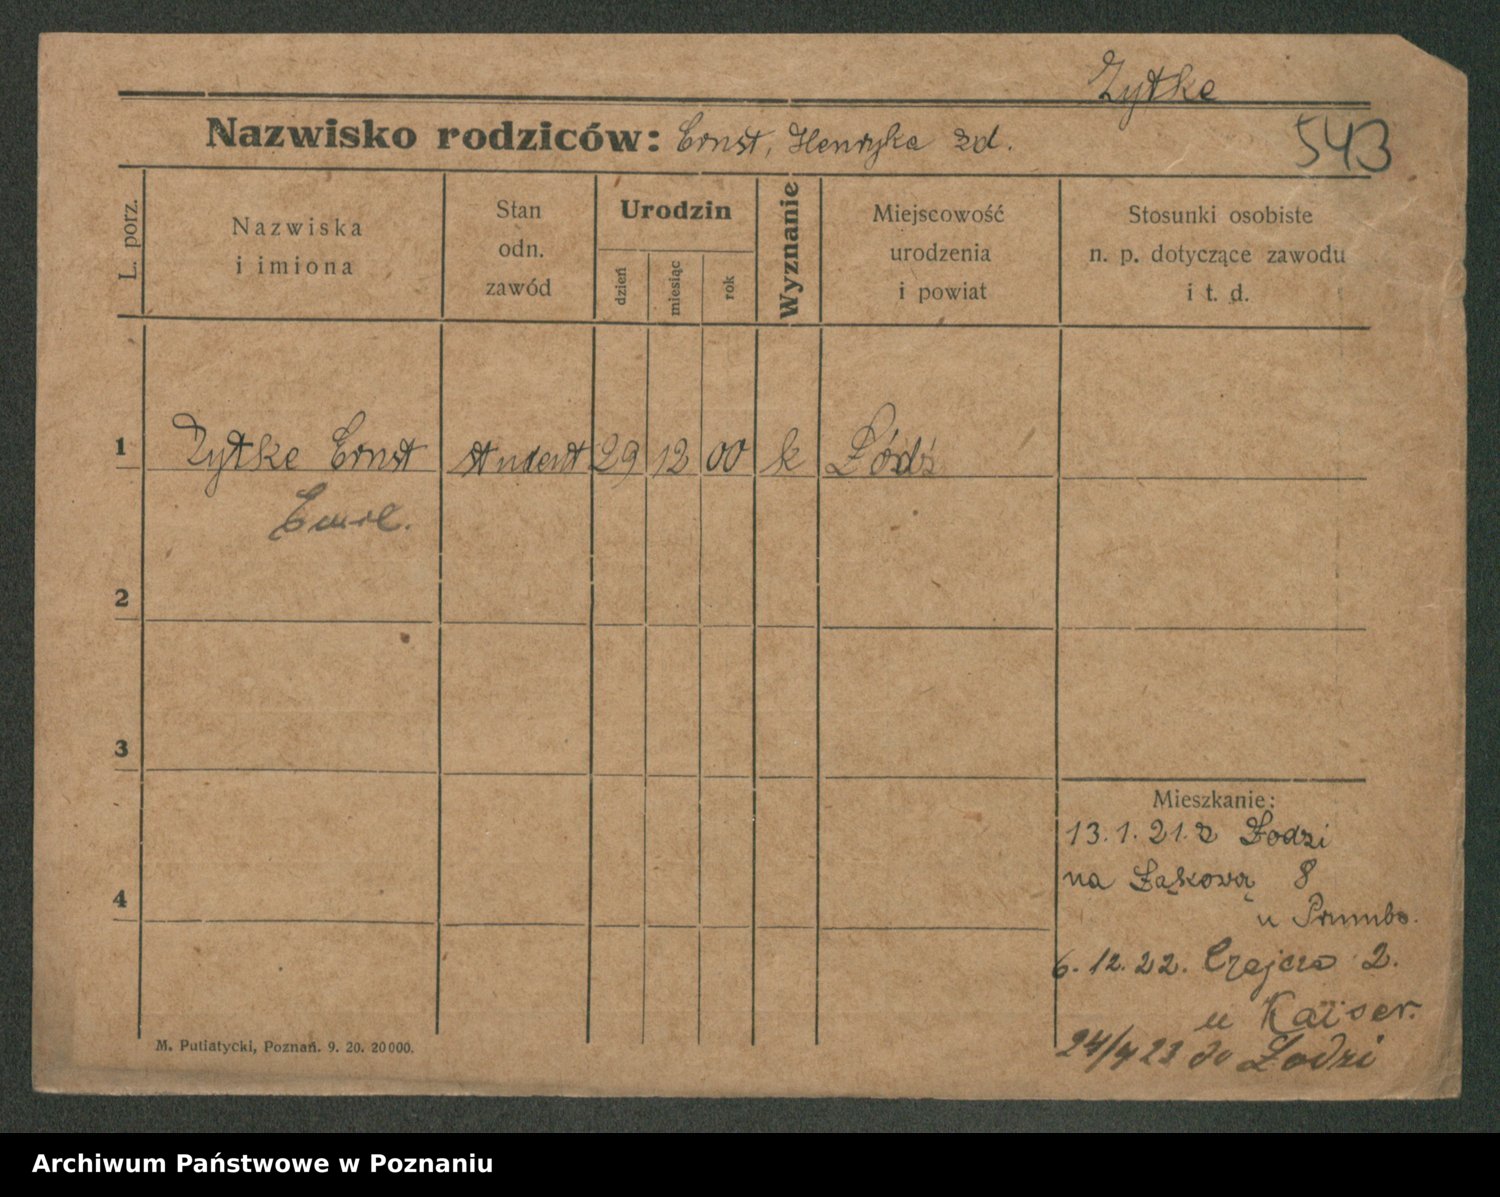 Zytke
Nazwisko rodziców: Ernst, Henryka zd.
543
L. porz.
Nazwiska
i imiona
Stan
odn.
zawód
Urodzin
dzień
miesiąc
rok
Wyznanie
Miejscowość
urodzenia
i powiat
Stosunki osobiste
n. p. dotyczące zawodu
i t. d.
1 Zytke Ernst student 29 12 00 k Łódź
Emil.
2
3
4
Mieszkanie:
13. 1. 21. z Łodzi
na Łąkową 8
u
6. 12. 22. 2.
u Kaiser.
24/4 23 do Łodzi
M. Putiatycki, Poznań. 9. 20. 20000.
Archiwum Państwowe w Poznaniu